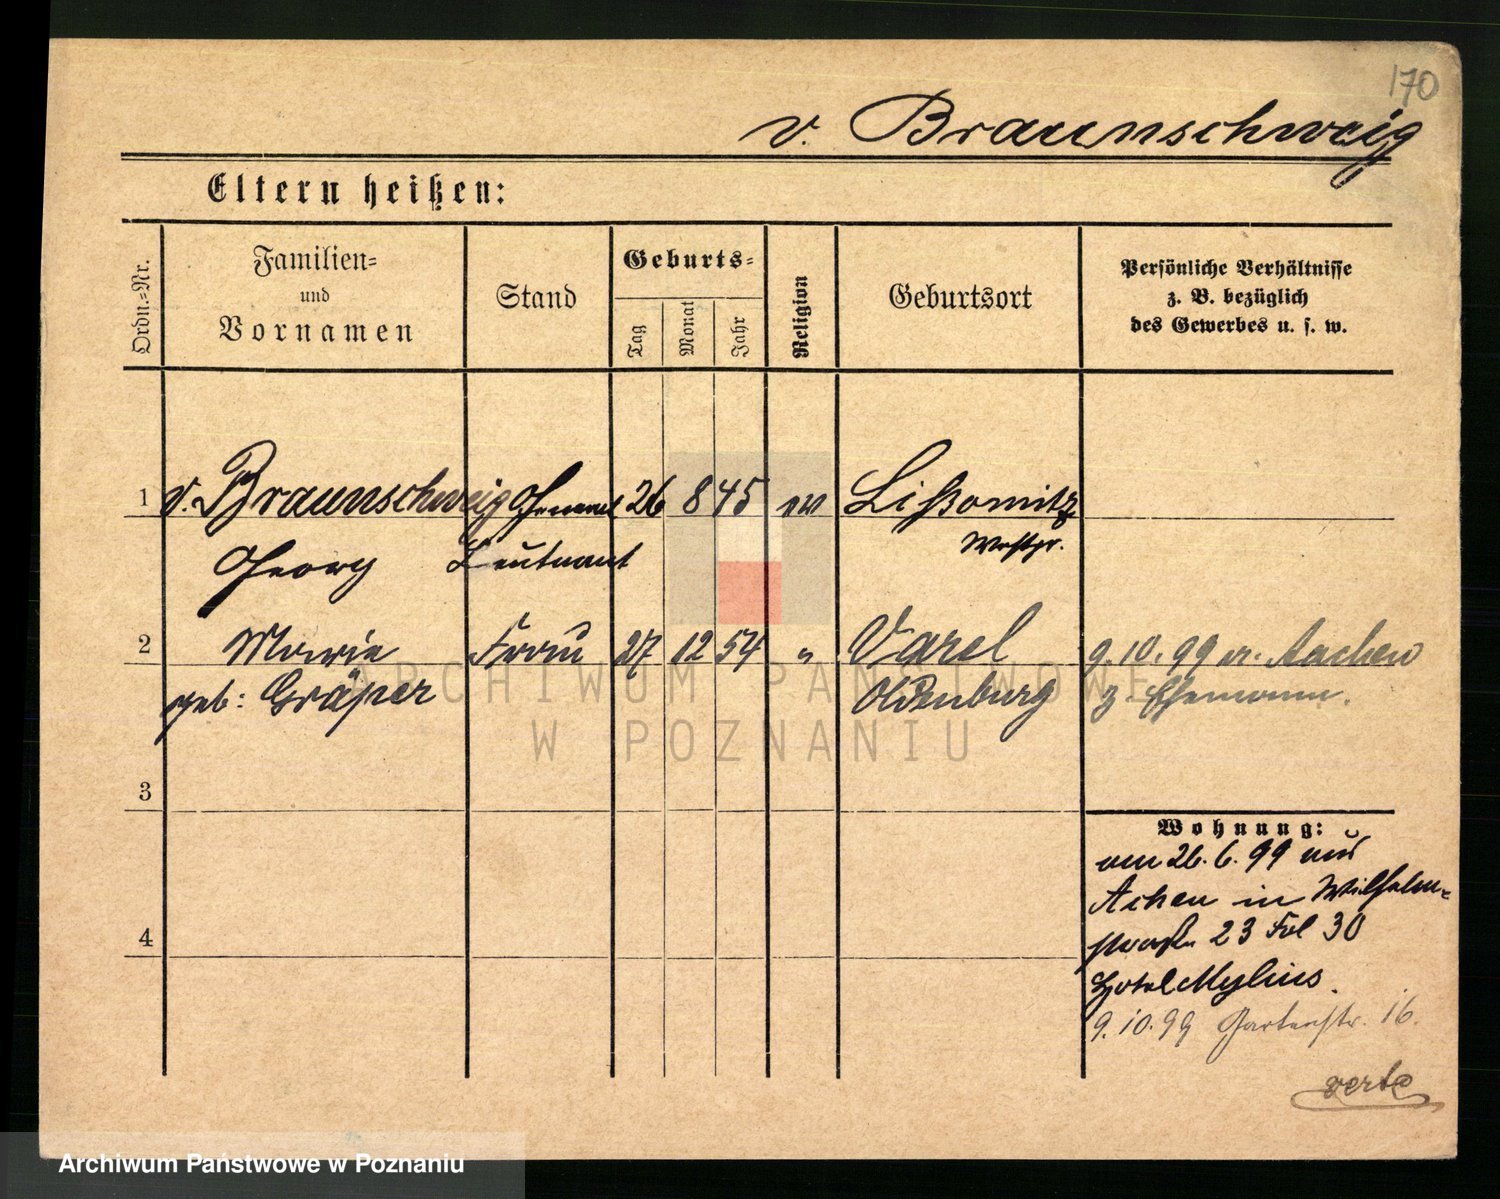 170
v. Braunschweig
Eltern heißen:
Ordn.=Nr.
Familien=
und
Vornamen
Stand
Geburts=
Tag
Monat
Jahr
Religion
Geburtsort
Persönliche Verhältnisse
z. B. bezüglich
des Gewerbes u. s. w.
1 v. Braunschweig General 26 8 45 ev Lißomitz
Georg Leutnant Westpr.
2 Marie Frau 27 12 54 " Varel 9.10.99 v. Aachen
geb: Gräper Oldenburg z Ehemann.
3
4
Wohnung:
am 26.6.99 aus
Achen in Wilhelm-
straße 23 Fol 30
Hotel Mylius.
9.10.99 Gartenstr. 16.
verte
ARCHIWUM PAŃSTWOWE
W POZNANIU
Archiwum Państwowe w Poznaniu